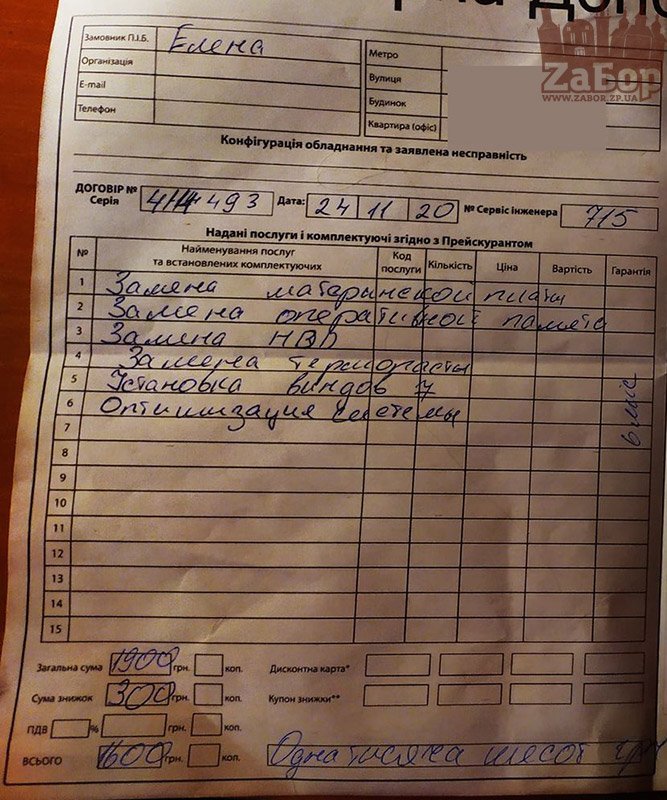 ZaБор
WWW.ZABOR.ZP.UA
Замовник П.І.Б. Елена
Організація
E-mail
Телефон
Метро
Вулиця
Будинок
Квартира (офіс)
Конфігурація обладнання та заявлена несправність
ДОГОВІР №
Серія 493 Дата: 24 11 20 № Сервіс інженера 715
Надані послуги і комплектуючі згідно з Прейскурантом
№ Найменування послуг та встановлених комплектуючих Код послуги Кількість Ціна Вартість Гарантія
1 Замена материнской платы
2 Замена оперативной памяти
3 Замена
4 Замена термопасты
5 Установка виндовс 7
6 Оптимизация системы
6 міс
7
8
9
10
11
12
13
14
15
Загальна сума 1900 грн. коп. Дисконтна карта*
Сума знижок 300 грн. коп. Купон знижки**
ПДВ % грн. коп.
ВСЬОГО 1600 грн. коп. Одна тисяча шесот грн